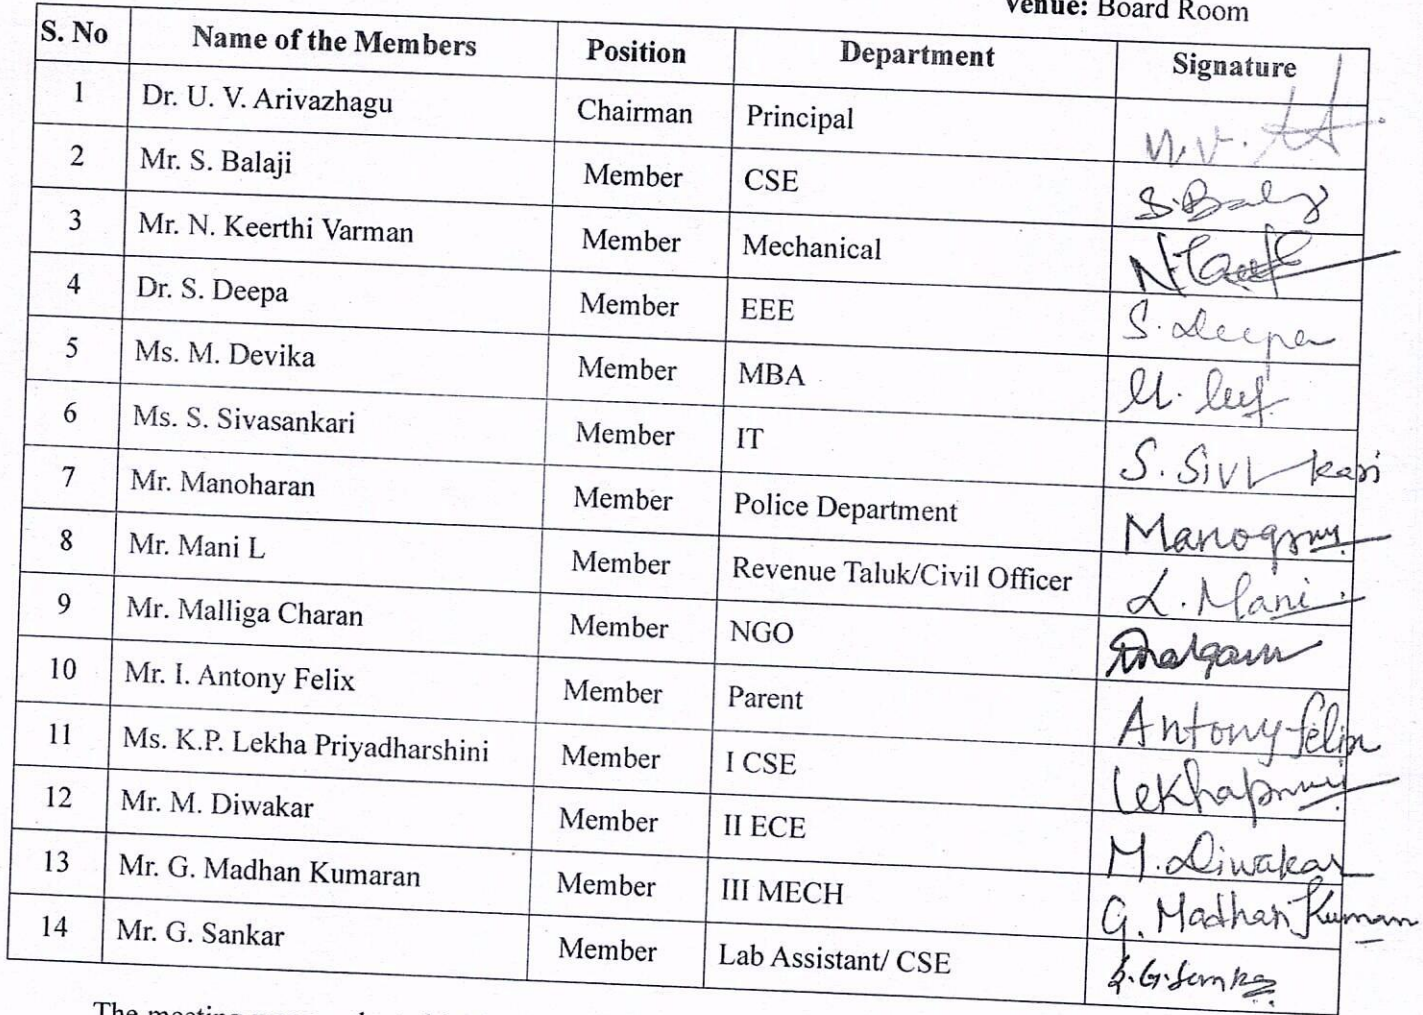 Venue: Board Room
S. No Name of the Members Position Department Signature
1 Dr. U. V. Arivazhagu Chairman Principal U.V.
2 Mr. S. Balaji Member CSE S.Balaji
3 Mr. N. Keerthi Varman Member Mechanical
4 Dr. S. Deepa Member EEE S. Deepa
5 Ms. M. Devika Member MBA M.
6 Ms. S. Sivasankari Member IT S.
7 Mr. Manoharan Member Police Department
8 Mr. Mani L Member Revenue Taluk/Civil Officer L. Mani
9 Mr. Malliga Charan Member NGO
10 Mr. I. Antony Felix Member Parent Antony Felix
11 Ms. K.P. Lekha Priyadharshini Member I CSE
12 Mr. M. Diwakar Member II ECE M. Diwakar
13 Mr. G. Madhan Kumaran Member III MECH G. Madhan Kumaran
14 Mr. G. Sankar Member Lab Assistant/ CSE
The meeting